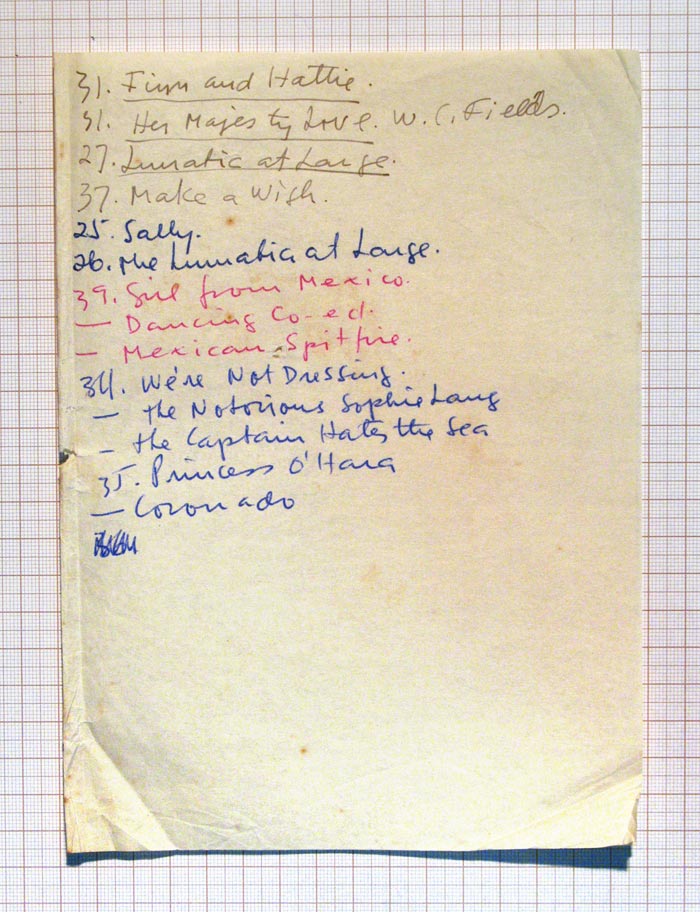 31. Finn and Hattie.
31. Her Majesty Love. W. C. Fields.
27. Lunatic at Large.
37. Make a Wish.
25. Sally.
26. The Lunatic at Large.
39. Girl from Mexico.
— Dancing Co-ed.
— Mexican Spitfire.
34. We're Not Dressing.
— the Notorious Sophie Lang
— the Captain Hates the Sea
35. Princess O'Hara
— Coronado